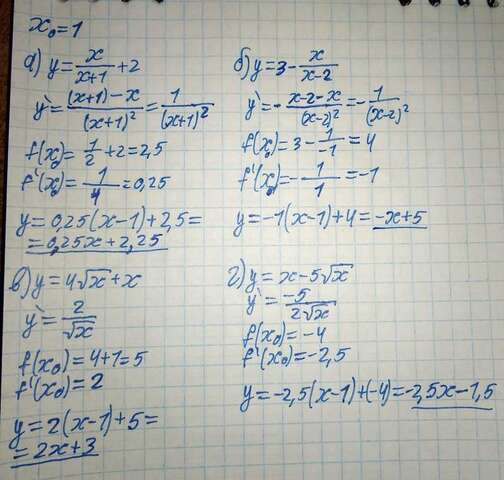 x₀=1
а) y = x/(x+1) + 2
y' = ((x+1)-x)/(x+1)² = 1/(x+1)²
f(x₀) = 1/2 + 2 = 2,5
f'(x₀) = 1/4 = 0,25
y = 0,25(x-1)+2,5=
= 0,25x+2,25
б) y = 3 - x/(x-2)
y' = - (x-2-x)/(x-2)² = - 1/(x-2)²
f(x₀) = 3 - 1/-1 = 4
f'(x₀) = - 1/1 = -1
y = -1(x-1)+4 = -x+5
в) y = 4√x + x
y' = 2/√x
f(x₀) = 4+1 = 5
f'(x₀) = 2
y = 2(x-1)+5=
= 2x+3
г) y = x-5√x
y' = -5/(2√x)
f(x₀) = -4
f'(x₀) = -2,5
y = -2,5(x-1)+(-4) = -2,5x-1,5